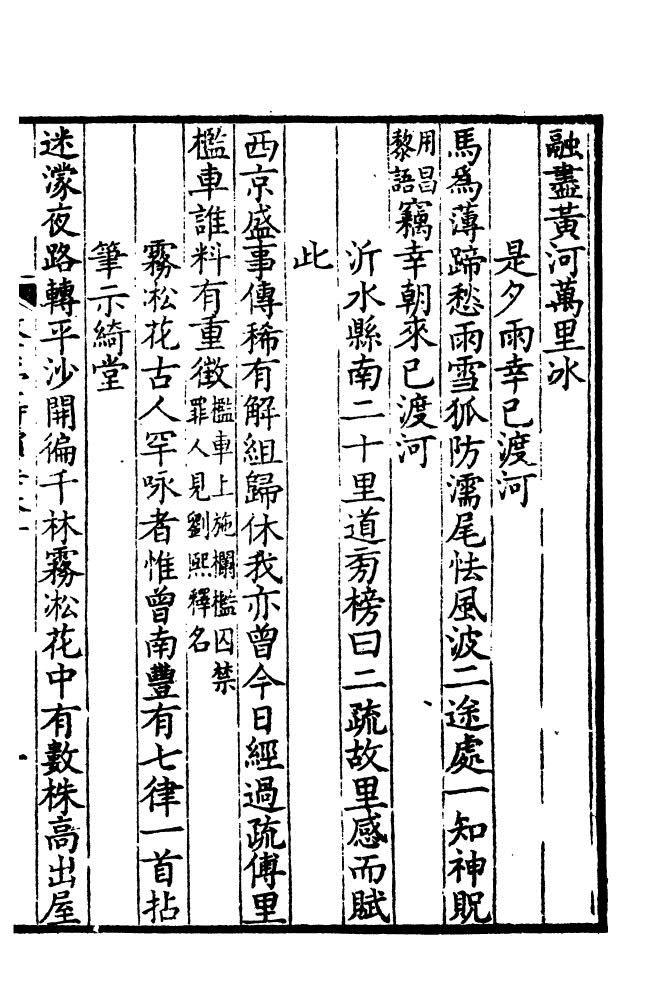 融盡黃河萬里冰
是夕雨幸已渡河
馬爲薄蹄愁雨雪狐防濡尾怯風波二途處一知神貺
用昌黎語竊幸朝來已渡河
沂水縣南二十里道旁榜曰二疏故里感而賦
此
西京盛事傳稀有解組歸休我亦曾今日經過疏傅里
檻車誰料有重徵檻車上施欄檻囚禁罪人見劉熙釋名
霧凇花古人罕咏者惟曾南豐有七律一首拈
筆示綺堂
迷濛夜路轉平沙開徧千林霧凇花中有數株高出屋